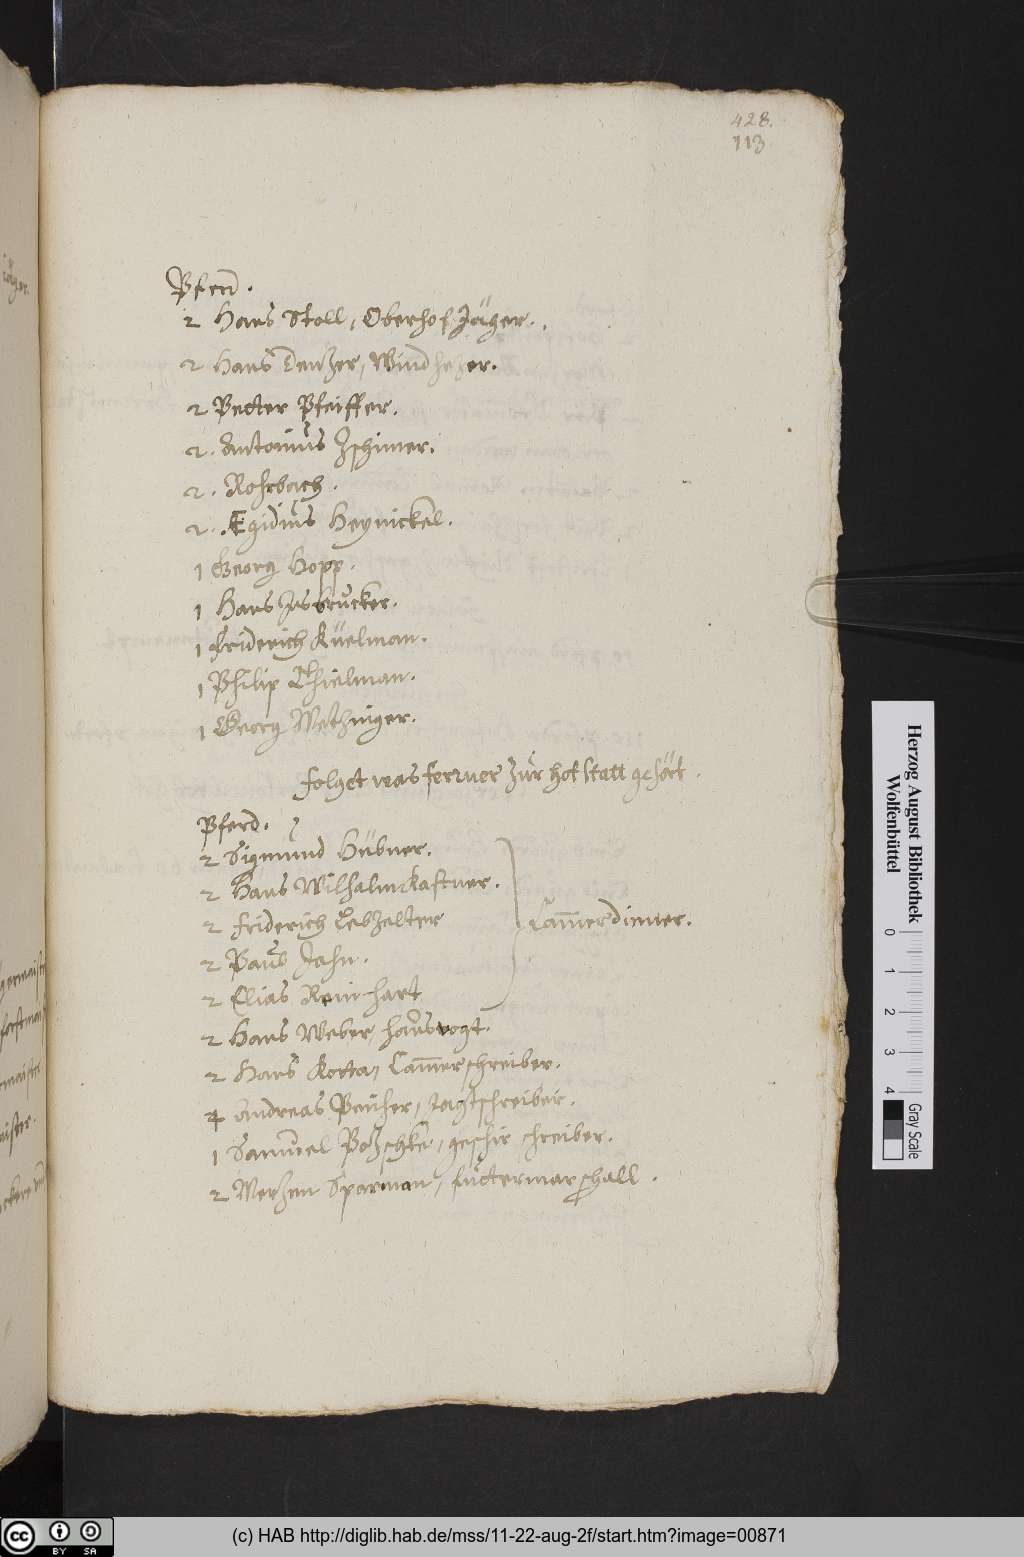 428.
113.
Pferd.
2 Hans Stoll, Oberhof Jäger.
2 Hans Dentzer, Windhetzer.
2 Petter Pfeiffer.
2. Antonius Zschimer.
2. Rohrbach.
2. Ægidius Heynickel.
1 Georg Hopp.
1 Hans Insbrucker.
1 Friderich Küelman.
1 Philip Thielman.
1 Georg Methinger.
Folget was ferner zur hofstatt gehört.
Pferd.
2 Sigmund Hübner.
2 Hans Wilhalm Kastner.
2 Friderich Lebzelter
2 Paus Jahn.
2 Elias Reinhart
Cam̄erdiener.
2 Hans Weber, hausvogt.
2 Hans Kotta, Cam̄erschreiber.
4 Andreas , Jagtschreiber.
1 Samuel Pötzschke, geschir schreiber.
2 Merten Sparman, futtermarschall.
Herzog August Bibliothek
Wolfenbüttel
0 1 2 3 4
Gray Scale
(c) HAB http://diglib.hab.de/mss/11-22-aug-2f/start.htm?image=00871
cc BY SA